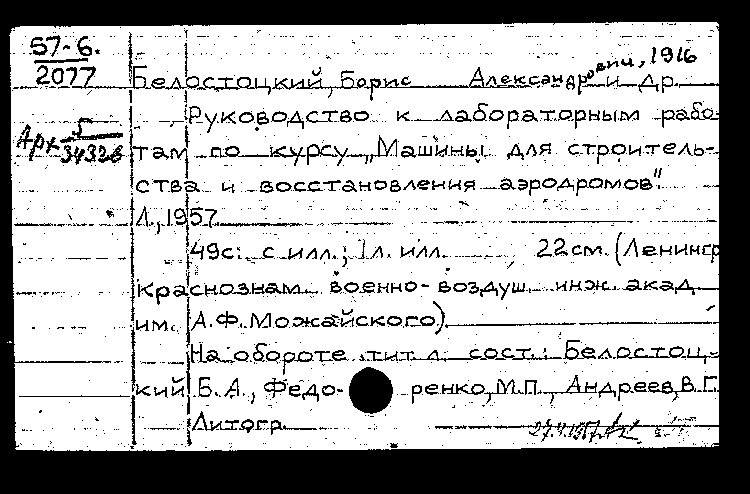 57-6.
2077
Белостоцкий, Борис Александрович, 1916 и др.
Руководство к лабораторным рабо-
Арх 5/34326
там по курсу „Машины для строитель-
ства и восстановления аэродромов".
Л., 1957
49с. с илл.; 1л. илл. 22см. (Ленингр
краснознам. военно-воздуш. инж. акад.
им. А.Ф. Можайского).
На обороте тит. л. сост.: Белостоц-
кий Б.А., Федоренко, М.П., Андреев, В.Г.
Литогр.